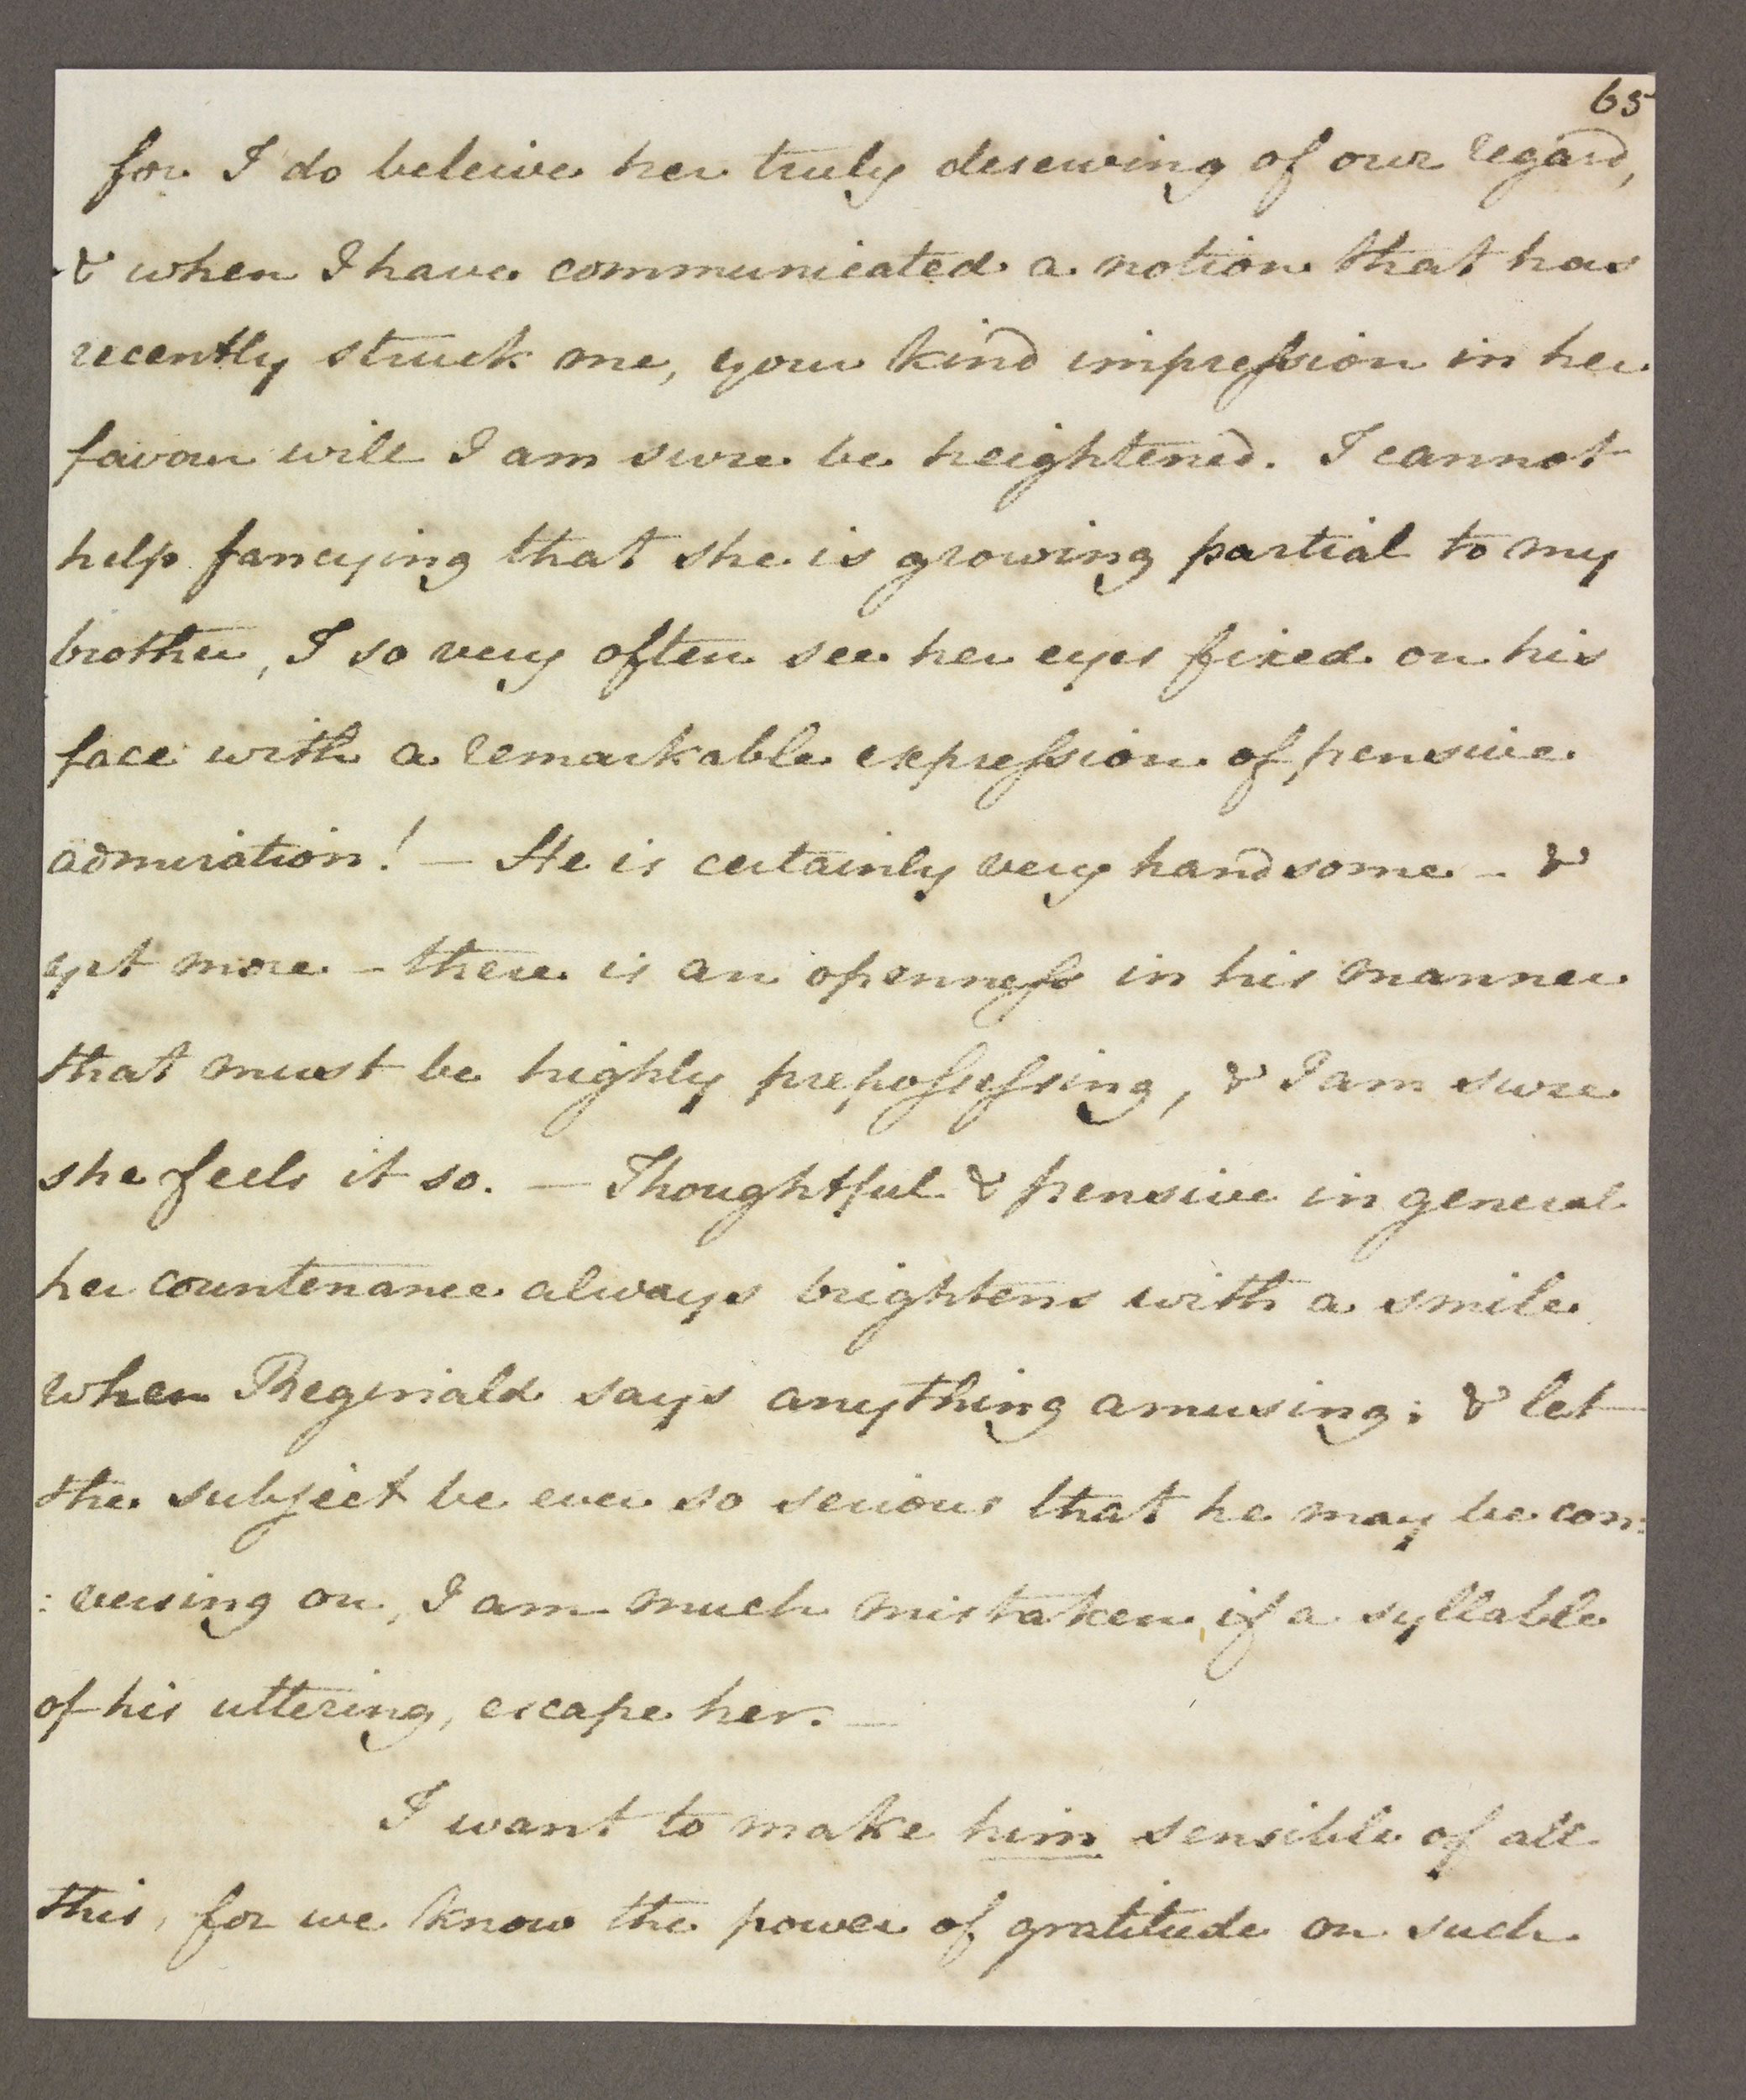 65
for I do beleive her truly deserving of our regard,
& when I have communicated a notion that has
recently struck me, your kind impression in her
favour will I am sure be heightened. I cannot
help fancying that she is growing partial to my
brother, I so very often see her eyes fixed on his
face with a remarkable expression of pensive
admiration! — He is certainly very handsome — &
yet more — there is an openness in his manner
that must be highly prepossessing, & I am sure
she feels it so. — Thoughtful & pensive in general
her countenance always brightens with a smile
when Reginald says anything amusing; & let
the subject be ever so serious that he may be con:
:versing on, I am much mistaken if a syllable
of his uttering, escape her. —
I want to make him sensible of all
this, for we know the power of gratitude on such